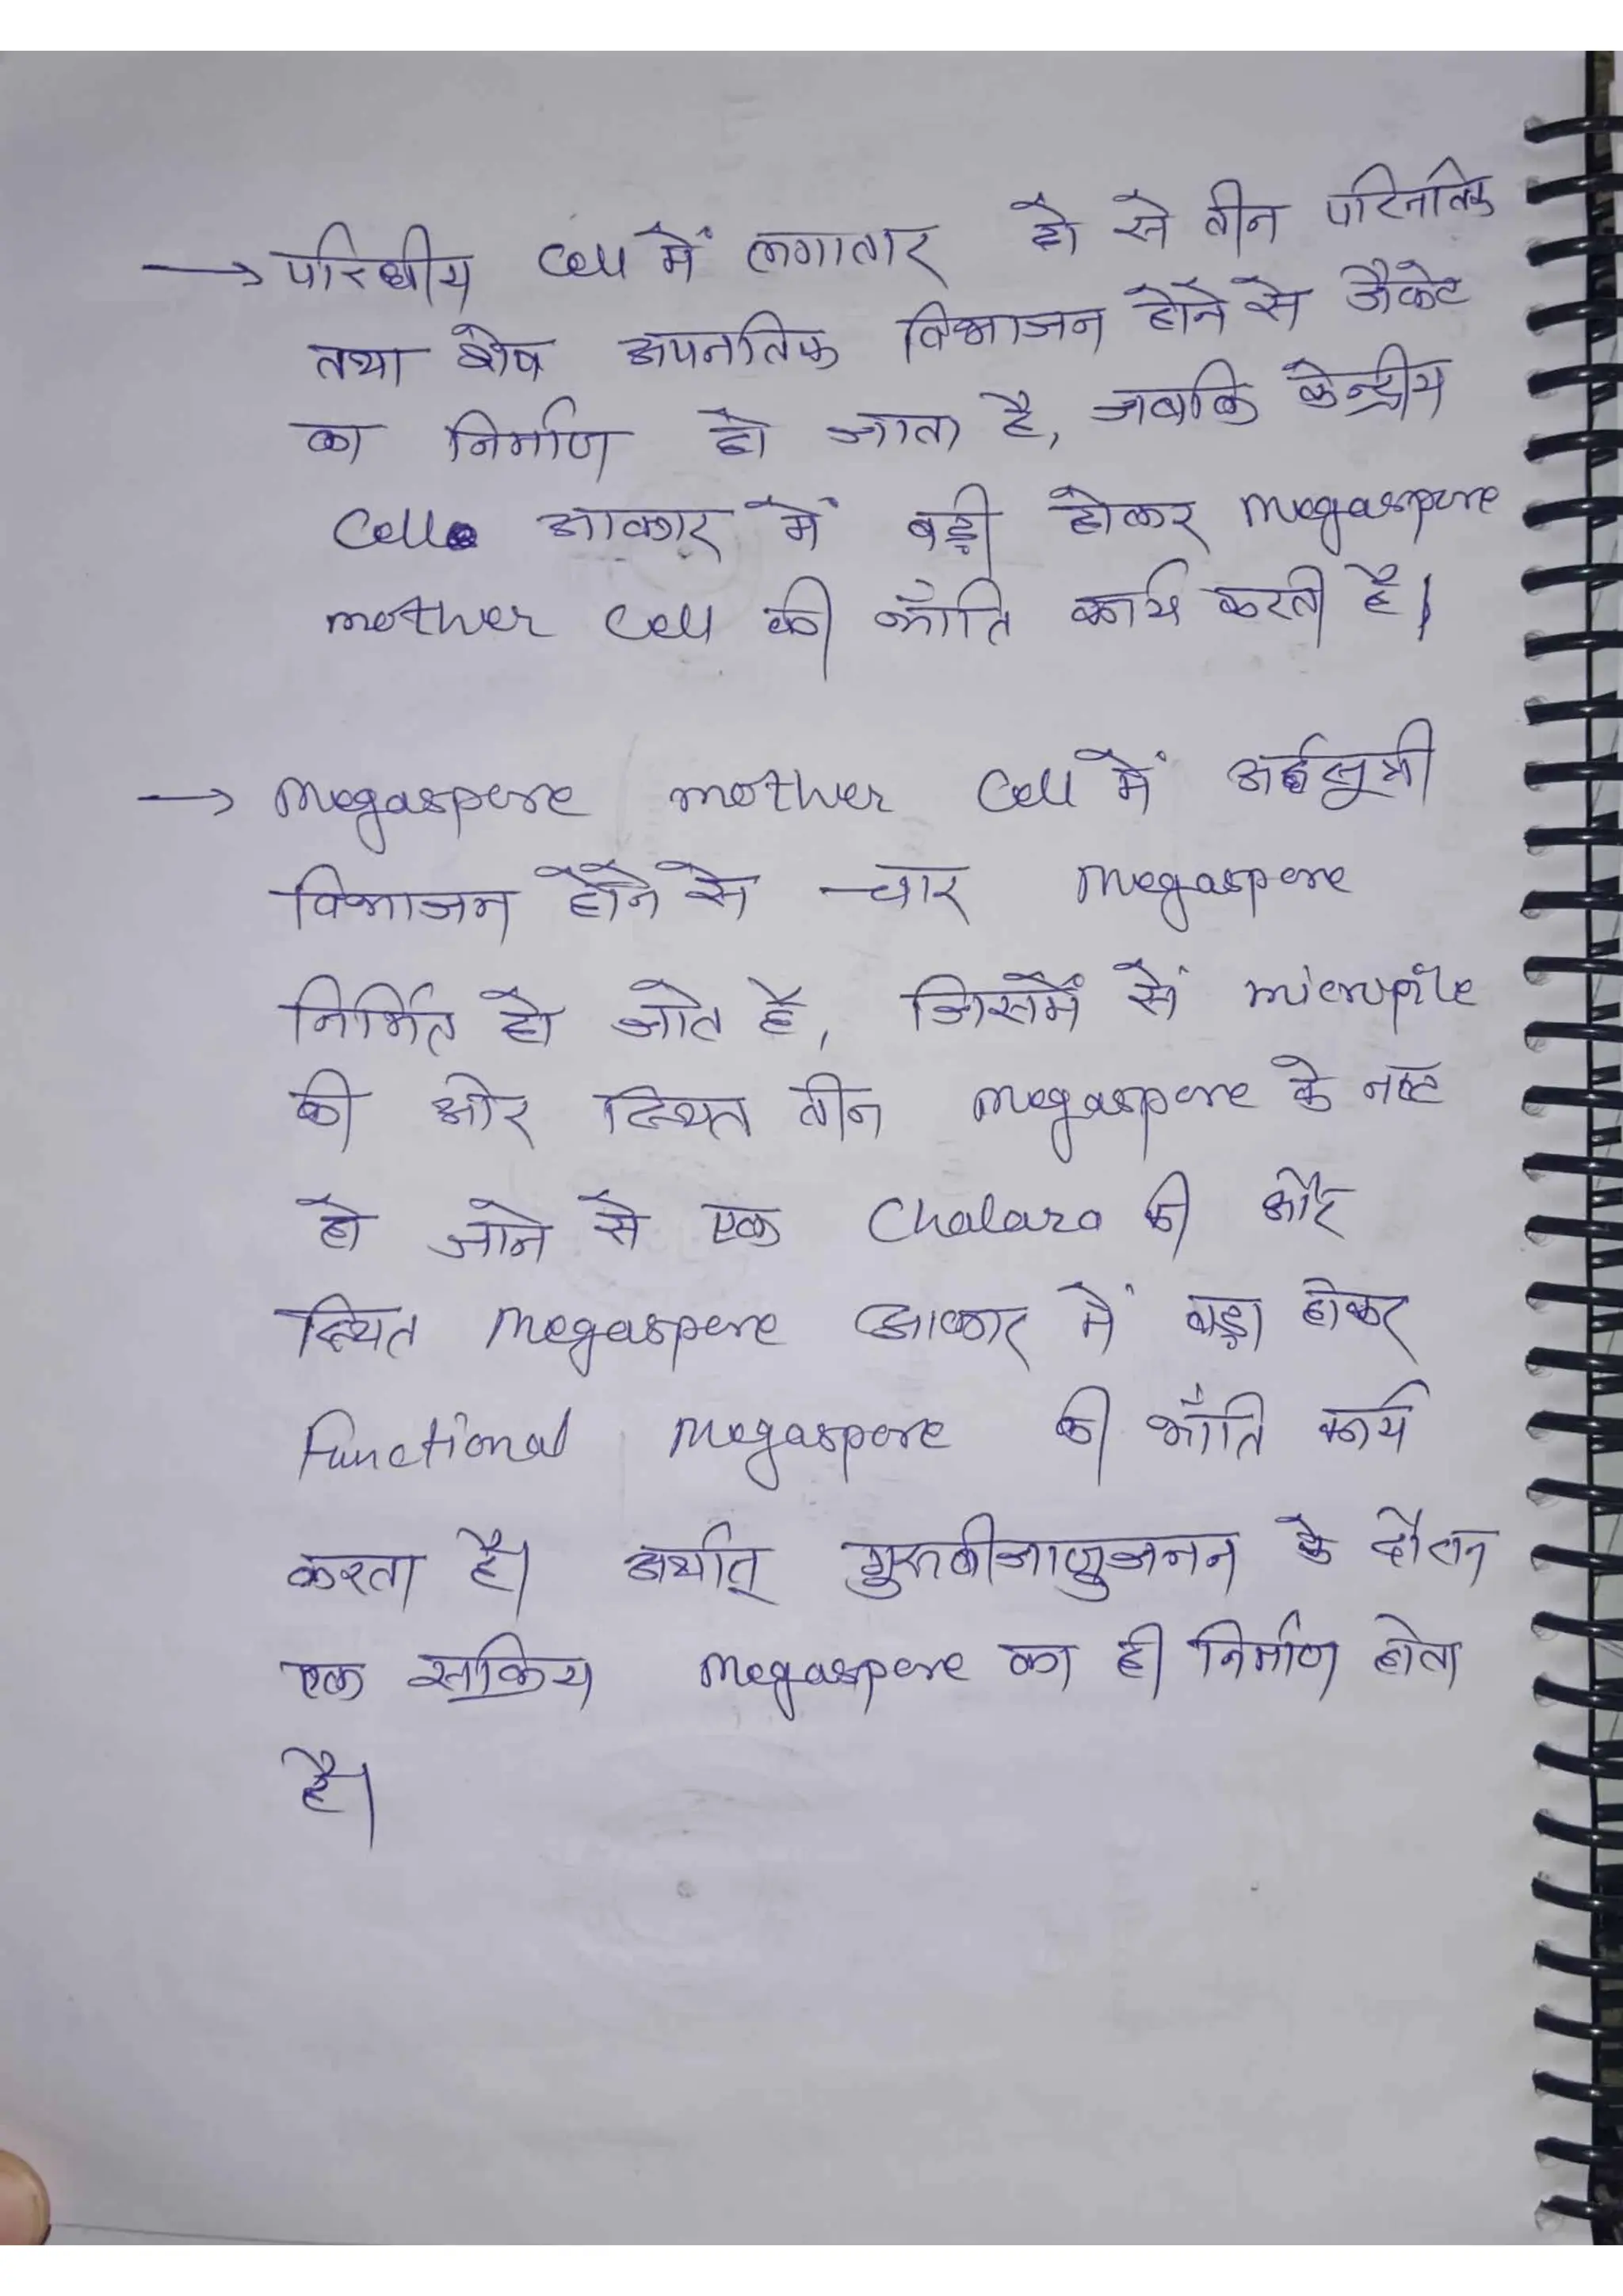 → परिधीय Cell में लगातार दो से तीन परिनतिक
तथा शेष अपनतिक विभाजन होने से जैकेट
का निर्माण हो जाता है, जबकि केन्द्रीय
Cell आकार में बड़ी होकर megaspore
mother Cell की भाँति कार्य करती है।
→ Megaspore mother Cell में अर्द्धसूत्री
विभाजन होने से चार megaspore
निर्मित हो जाते है, जिसमें से micropile
की ओर स्थित तीन megaspore के नष्ट
हो जाने से एक Chalaza की ओर
स्थित megaspore आकार में बड़ा होकर
Functional megaspore की भाँति कार्य
करता है। अर्थात् गुरुबीजाणुजनन के दौरान
एक सक्रिय megaspore का ही निर्माण होता
है।